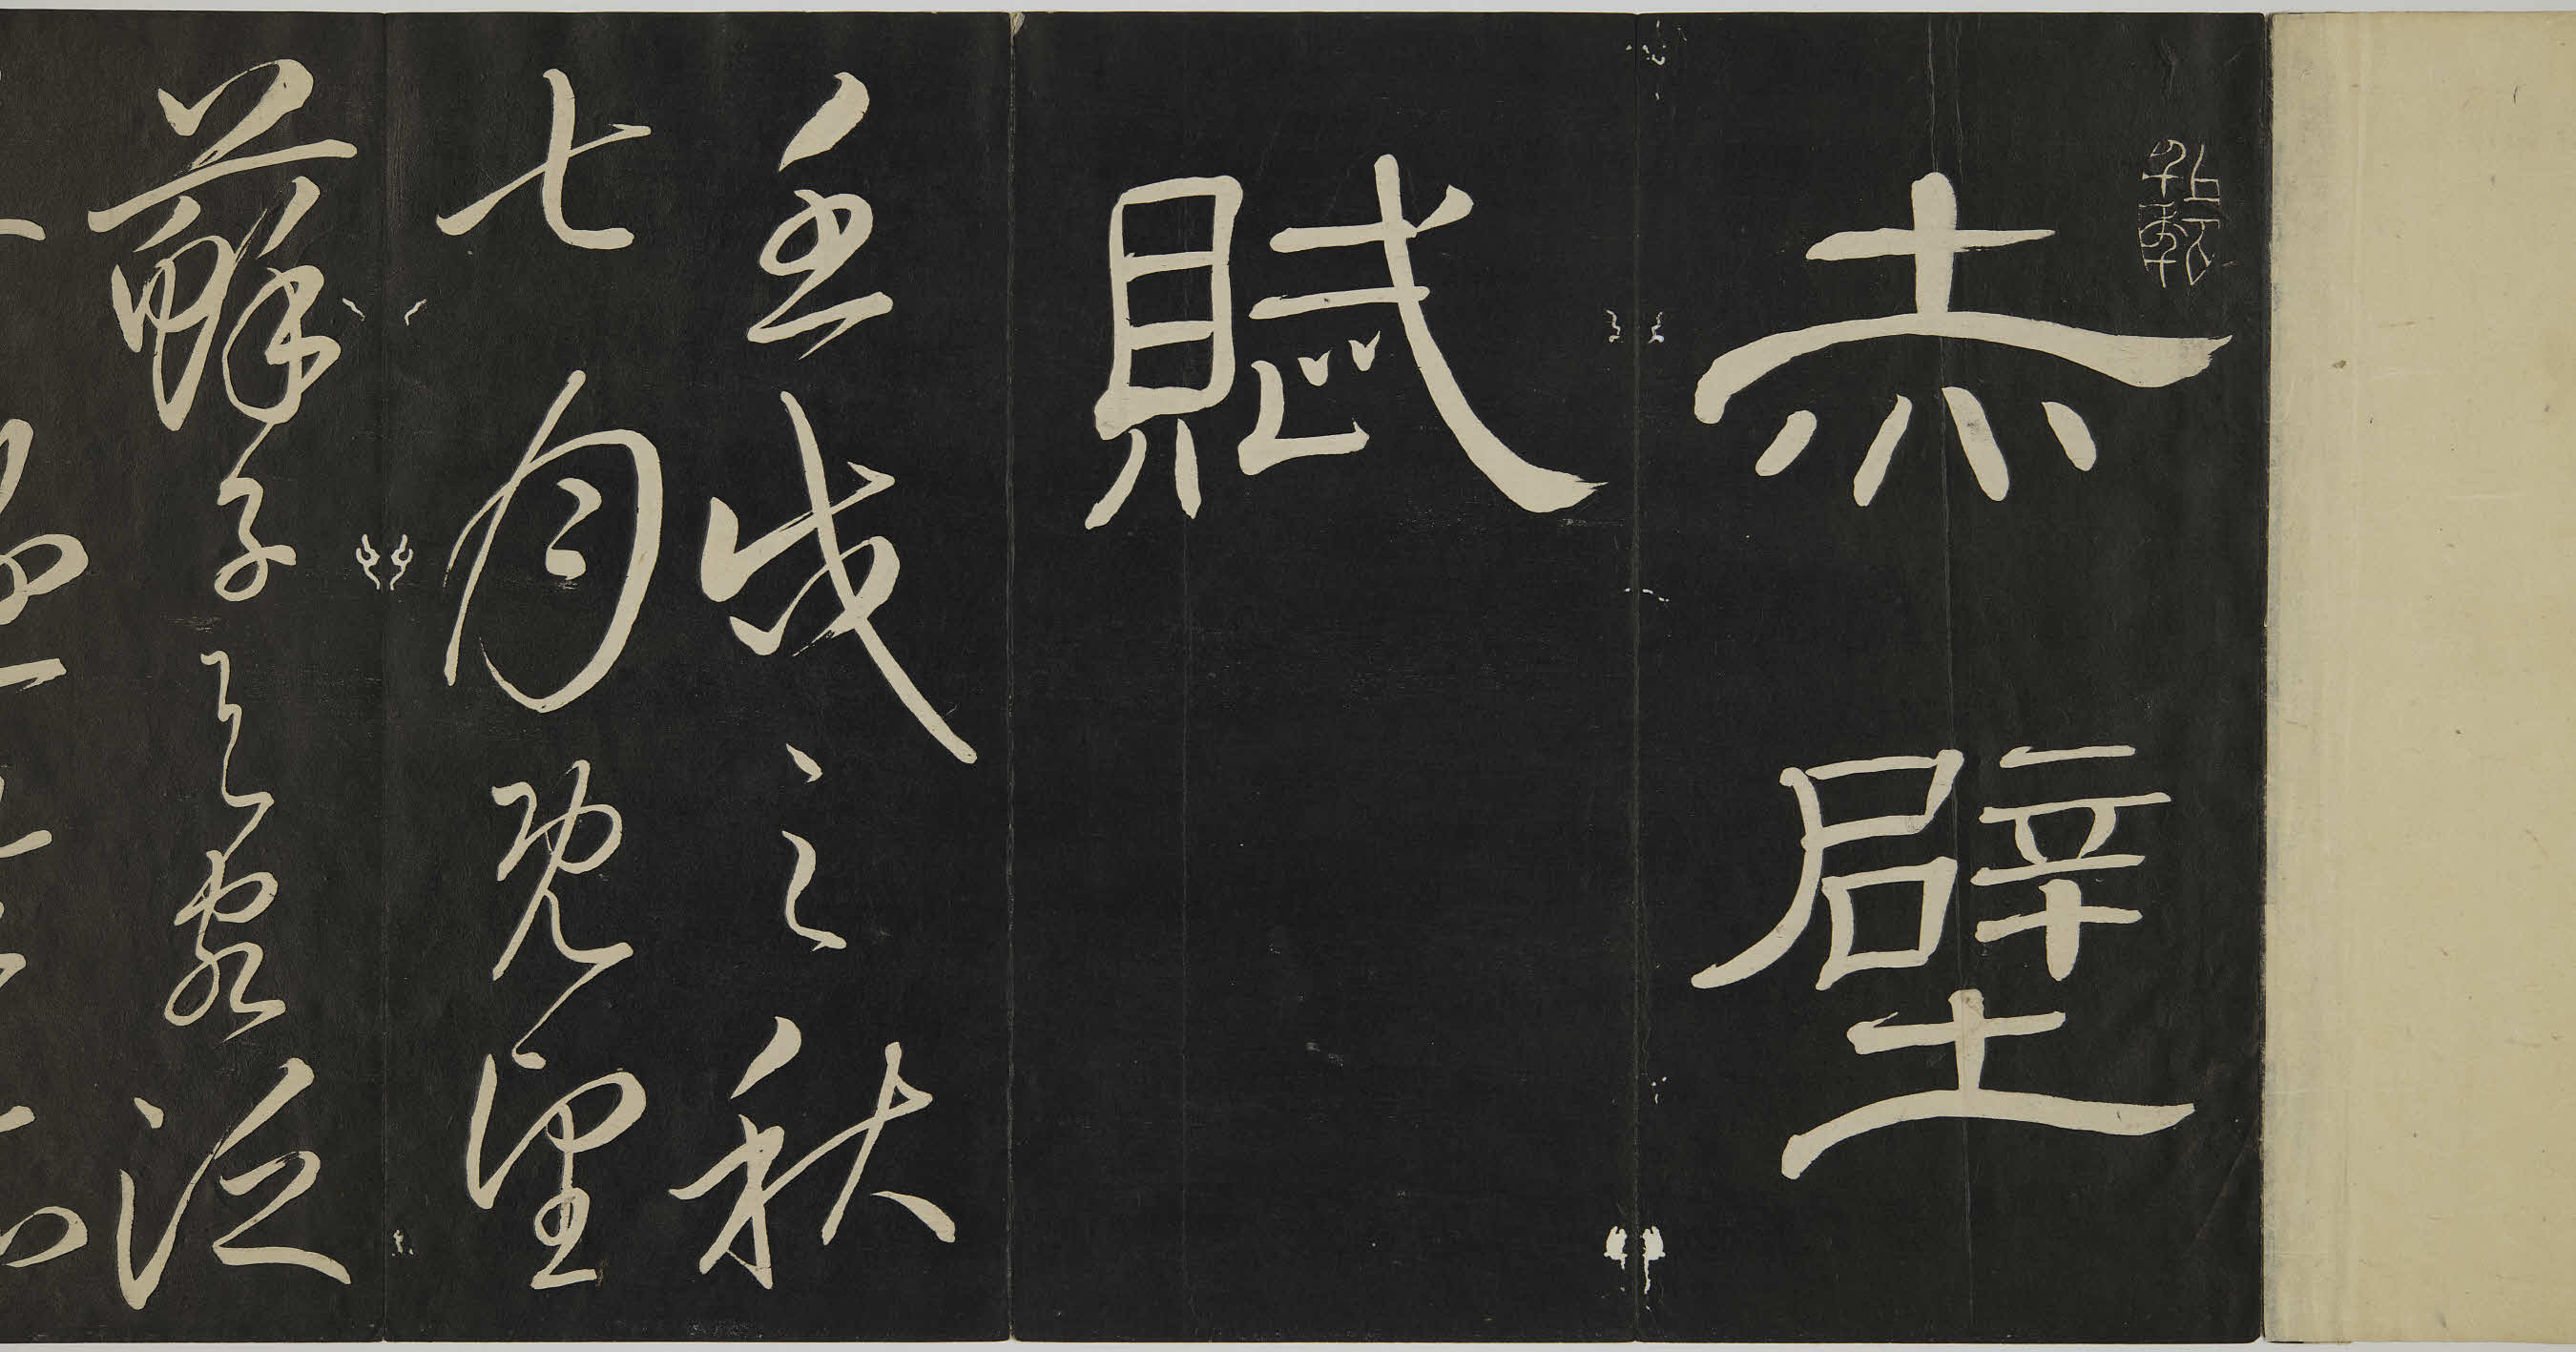 赤壁
賦
壬戌之秋
七月既望
蘇子與客泛